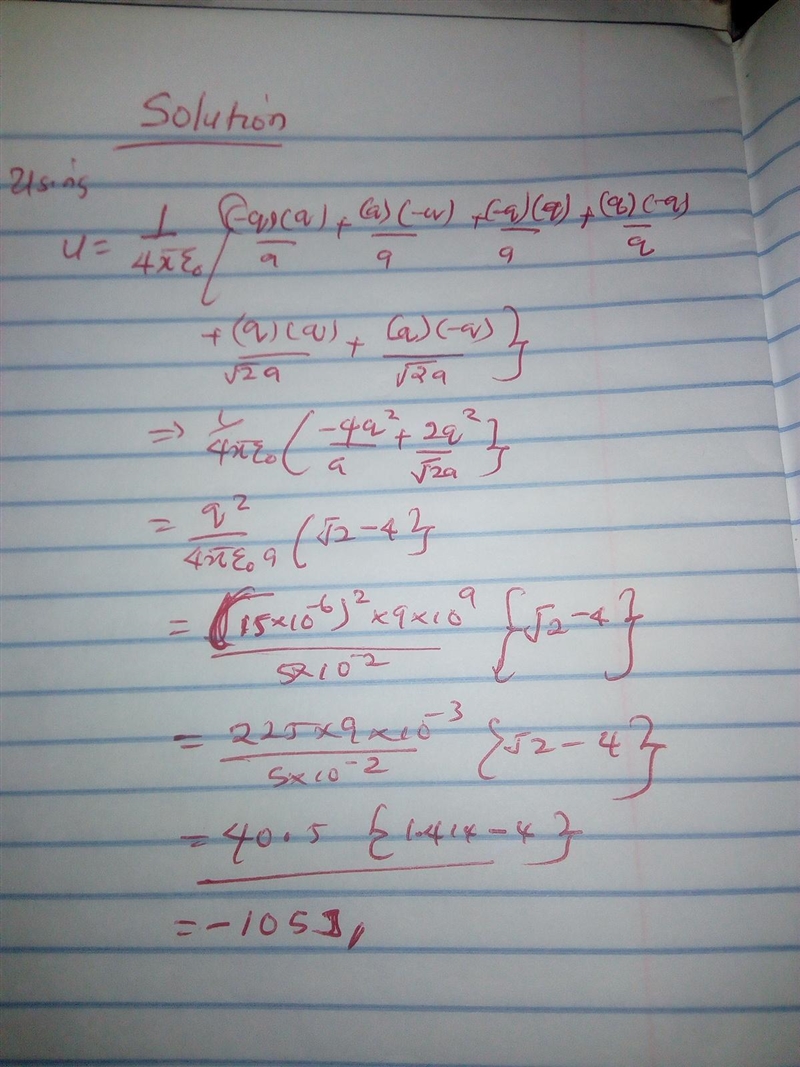 Solution
Using
U = 1/4πε₀ { (-q)(q)/a + (q)(-q)/a + (-q)(q)/a + (q)(-q)/a
+ (q)(q)/√2a + (q)(-q)/√2a }
⇒ 1/4πε₀ ( -4q²/a + 2q²/√2a }
= q²/4πε₀a ( √2 - 4 }
= (15×10⁻⁶)² × 9×10⁹ / 5×10⁻² { √2 - 4 }
= 225×9×10⁻³ / 5×10⁻² { √2 - 4 }
= 40.5 { 1.414 - 4 }
= -105J,